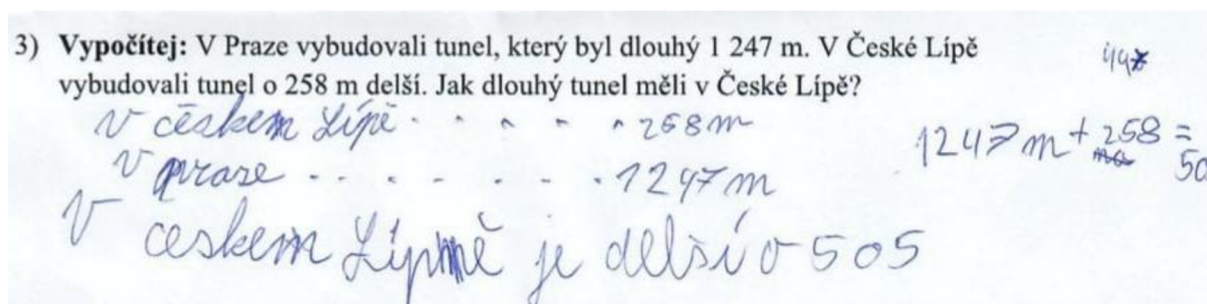 3) Vypočítej: V Praze vybudovali tunel, který byl dlouhý 1 247 m. V České Lípě
vybudovali tunel o 258 m delší. Jak dlouhý tunel měli v České Lípě?
v českem Lípě . . . . . 258m
1247 m + 258 =
50
v praze . . . . . . . 1247m
V ceskem je delsí o 505